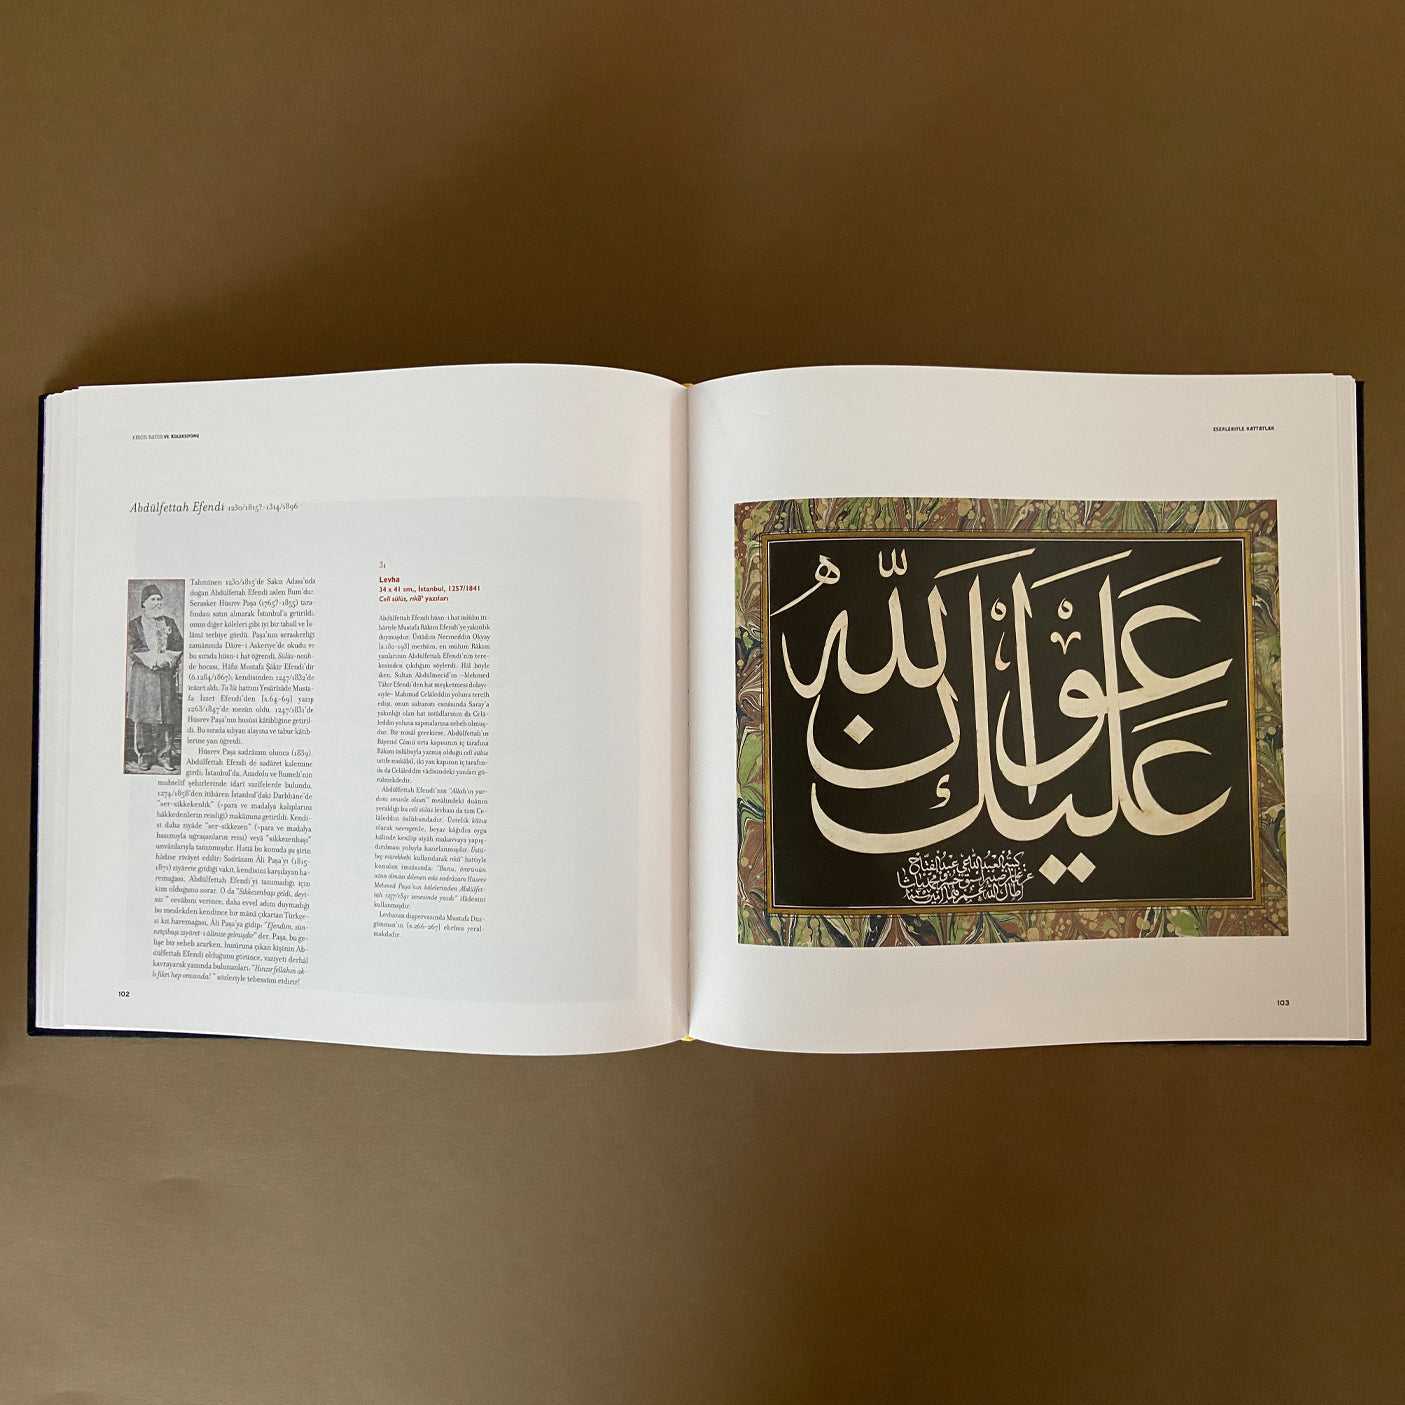 VE KOLEKSİYONU
Abdülfettah Efendi 1230/1815?-1314/1896
Tahminen 1230/1815'de Sakız Adası'nda
doğan Abdülfettah Efendi aslen Rum'dur.
Serasker Hüsrev Paşa (1765?-1855) tara-
fından satın alınarak İstanbul'a getirildi,
onun diğer köleleri gibi iyi bir tahsil ve İs-
lâmî terbiye gördü. Paşa'nın seraskerliği
zamanında Dâire-i Askeriye'de okudu ve
bu sırada hüsn-i hat öğrendi. Sülüs-nesih-
de hocası, Hâfız Mustafa Şâkir Efendi'dir
(ö.1284/1867); kendisinden 1247/1832'de
icâzet aldı. Ta'lik hattını Yesârîzâde Musta-
fa İzzet Efendi'den [s.64-69] yazıp
1263/1847'de mezun oldu. 1247/1831'de
Hüsrev Paşa'nın husûsî kâtibliğine getiril-
di. Bu sırada süvari alayına ve tabur kâtib-
lerine yazı öğretti.
Hüsrev Paşa sadrâzam olunca (1839),
Abdülfettah Efendi de sadâret kalemine
girdi; İstanbul'da, Anadolu ve Rumeli'nin
muhtelif şehirlerinde idarî vazifelerde bulundu.
1274/1858'den itibâren İstanbul'daki Darbhâne'de
"ser-sikkekenlik" (=para ve madalya kalıplarını
hâkkedenlerin reisliği) makâmına getirildi. Kendi-
si daha ziyâde "ser-sikkezen" (=para ve madalya
basımıyla uğraşanların reisi) veyâ "sikkezenbaşı"
unvânlarıyla tanınmıştır. Hattâ bu konuda şu şirin
hâdise rivâyet edilir: Sadrâzam Âli Paşa'yı (1815-
1871) ziyârete gittiği vakit, kendisini karşılayan ha-
remağası, Abdülfettah Efendi'yi tanımadığı için
kim olduğunu sorar. O da "Sikkezenbaşı geldi, deyi-
niz." cevâbını verince, daha evvel adını duymadığı
bu meslekden kendince bir mânâ çıkartan Türkçe-
si kıt haremağası, Âli Paşa'ya gidip: "Efendim, sün-
netçibaşı ziyâret-i âlinize gelmişdir" der. Paşa, bu ge-
lişe bir sebeb ararken, huzûruna çıkan kişinin Ab-
dülfettah Efendi olduğunu görünce, vaziyeti derhâl
kavrayarak yanında bulunanları, "Hınzır fellâhın ak-
lı fikri hep orasında!" sözleriyle tebessüm etdirir!
102
31
Levha
34 x 41 sm., İstanbul, 1257/1841
Celî sülüs, rıkā' yazıları
Abdülfettah Efendi hüsn-i hat üslûbu iti-
bâriyle Mustafa Râkım Efendi'ye yakınlık
duymuşdur. Üstâdım Necmeddin Okyay
[s.180-193] merhûm, en mühim Râkım
yazılarının Abdülfettah Efendi'nin tere-
kesinden çıkdığını söylerdi. Hâl böyle
iken, Sultan Abdülmecid'in -Mehmed
Tâhir Efendi'den hat meşketmesi dolayı-
siyle- Mahmud Celâleddin yolunu tercih
edişi, onun saltanatı esnâsında Saray'a
yakınlığı olan hat üstâdlarının da Celâ-
leddin yoluna sapmalarına sebeb olmuş-
dur. Bir misâl gerekirse, Abdülfettah'ın
Bâyezid Câmii orta kapısının iç tarafına
Râkım üslûbuyla yazmış olduğu celî sülüs
mukabil, iki yan kapının iç tarafın-
da da Celâleddin vâdisindeki yazıları gö-
rülmekdedir.
Abdülfettah Efendi'nin "Allah'ın yar-
dımı seninle olsun" meâlindeki duânın
yeraldığı bu celî sülüs levhası da tam Ce-
lâleddin üslûbundadır. Üstelik kâtıa
olarak sevrgenle, beyaz kâğıdın oyga
hâlinde kesilip siyâh mukavvaya yapış-
dırılması yoluyla hazırlanmışdır.
kullanılarak rıkā' hattıyla
konulan imzâsında: "Bunu,
Hüsrev
Mehmed Paşa'nın kölelerinden Abdülfet-
tah 1257/1841 senesinde yazdı" ifâdesini
kullanmışdır.
Levhanın dışpervazında Mustafa Düz-
günman'ın [s.266-267] ebrûsu yeral-
makdadır.
ESERLERİYLE HATTATLAR
عون الله
عليك
103